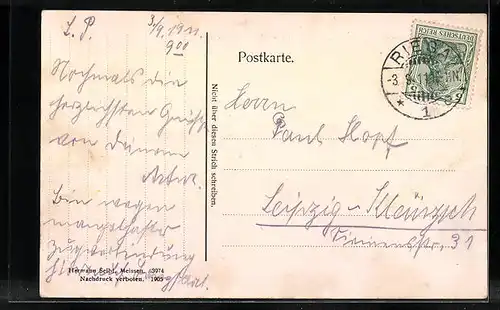 L. P. 3/9.1911.
9⁰⁰
Nochmals die
herzlichsten Grüße
von Deinem
Artur.
Bin wegen
mangelhafter
Zugverbindung
hier
Hermann Seibt, Meissen. 63974
Nachdruck verboten. 1905
Nicht über diesen Strich schreiben.
Postkarte.
DEUTSCHES REICH
RIESA
-3. 9. 11
* 1
Herrn
Paul Hopf
Leipzig-Kleinzsch
31